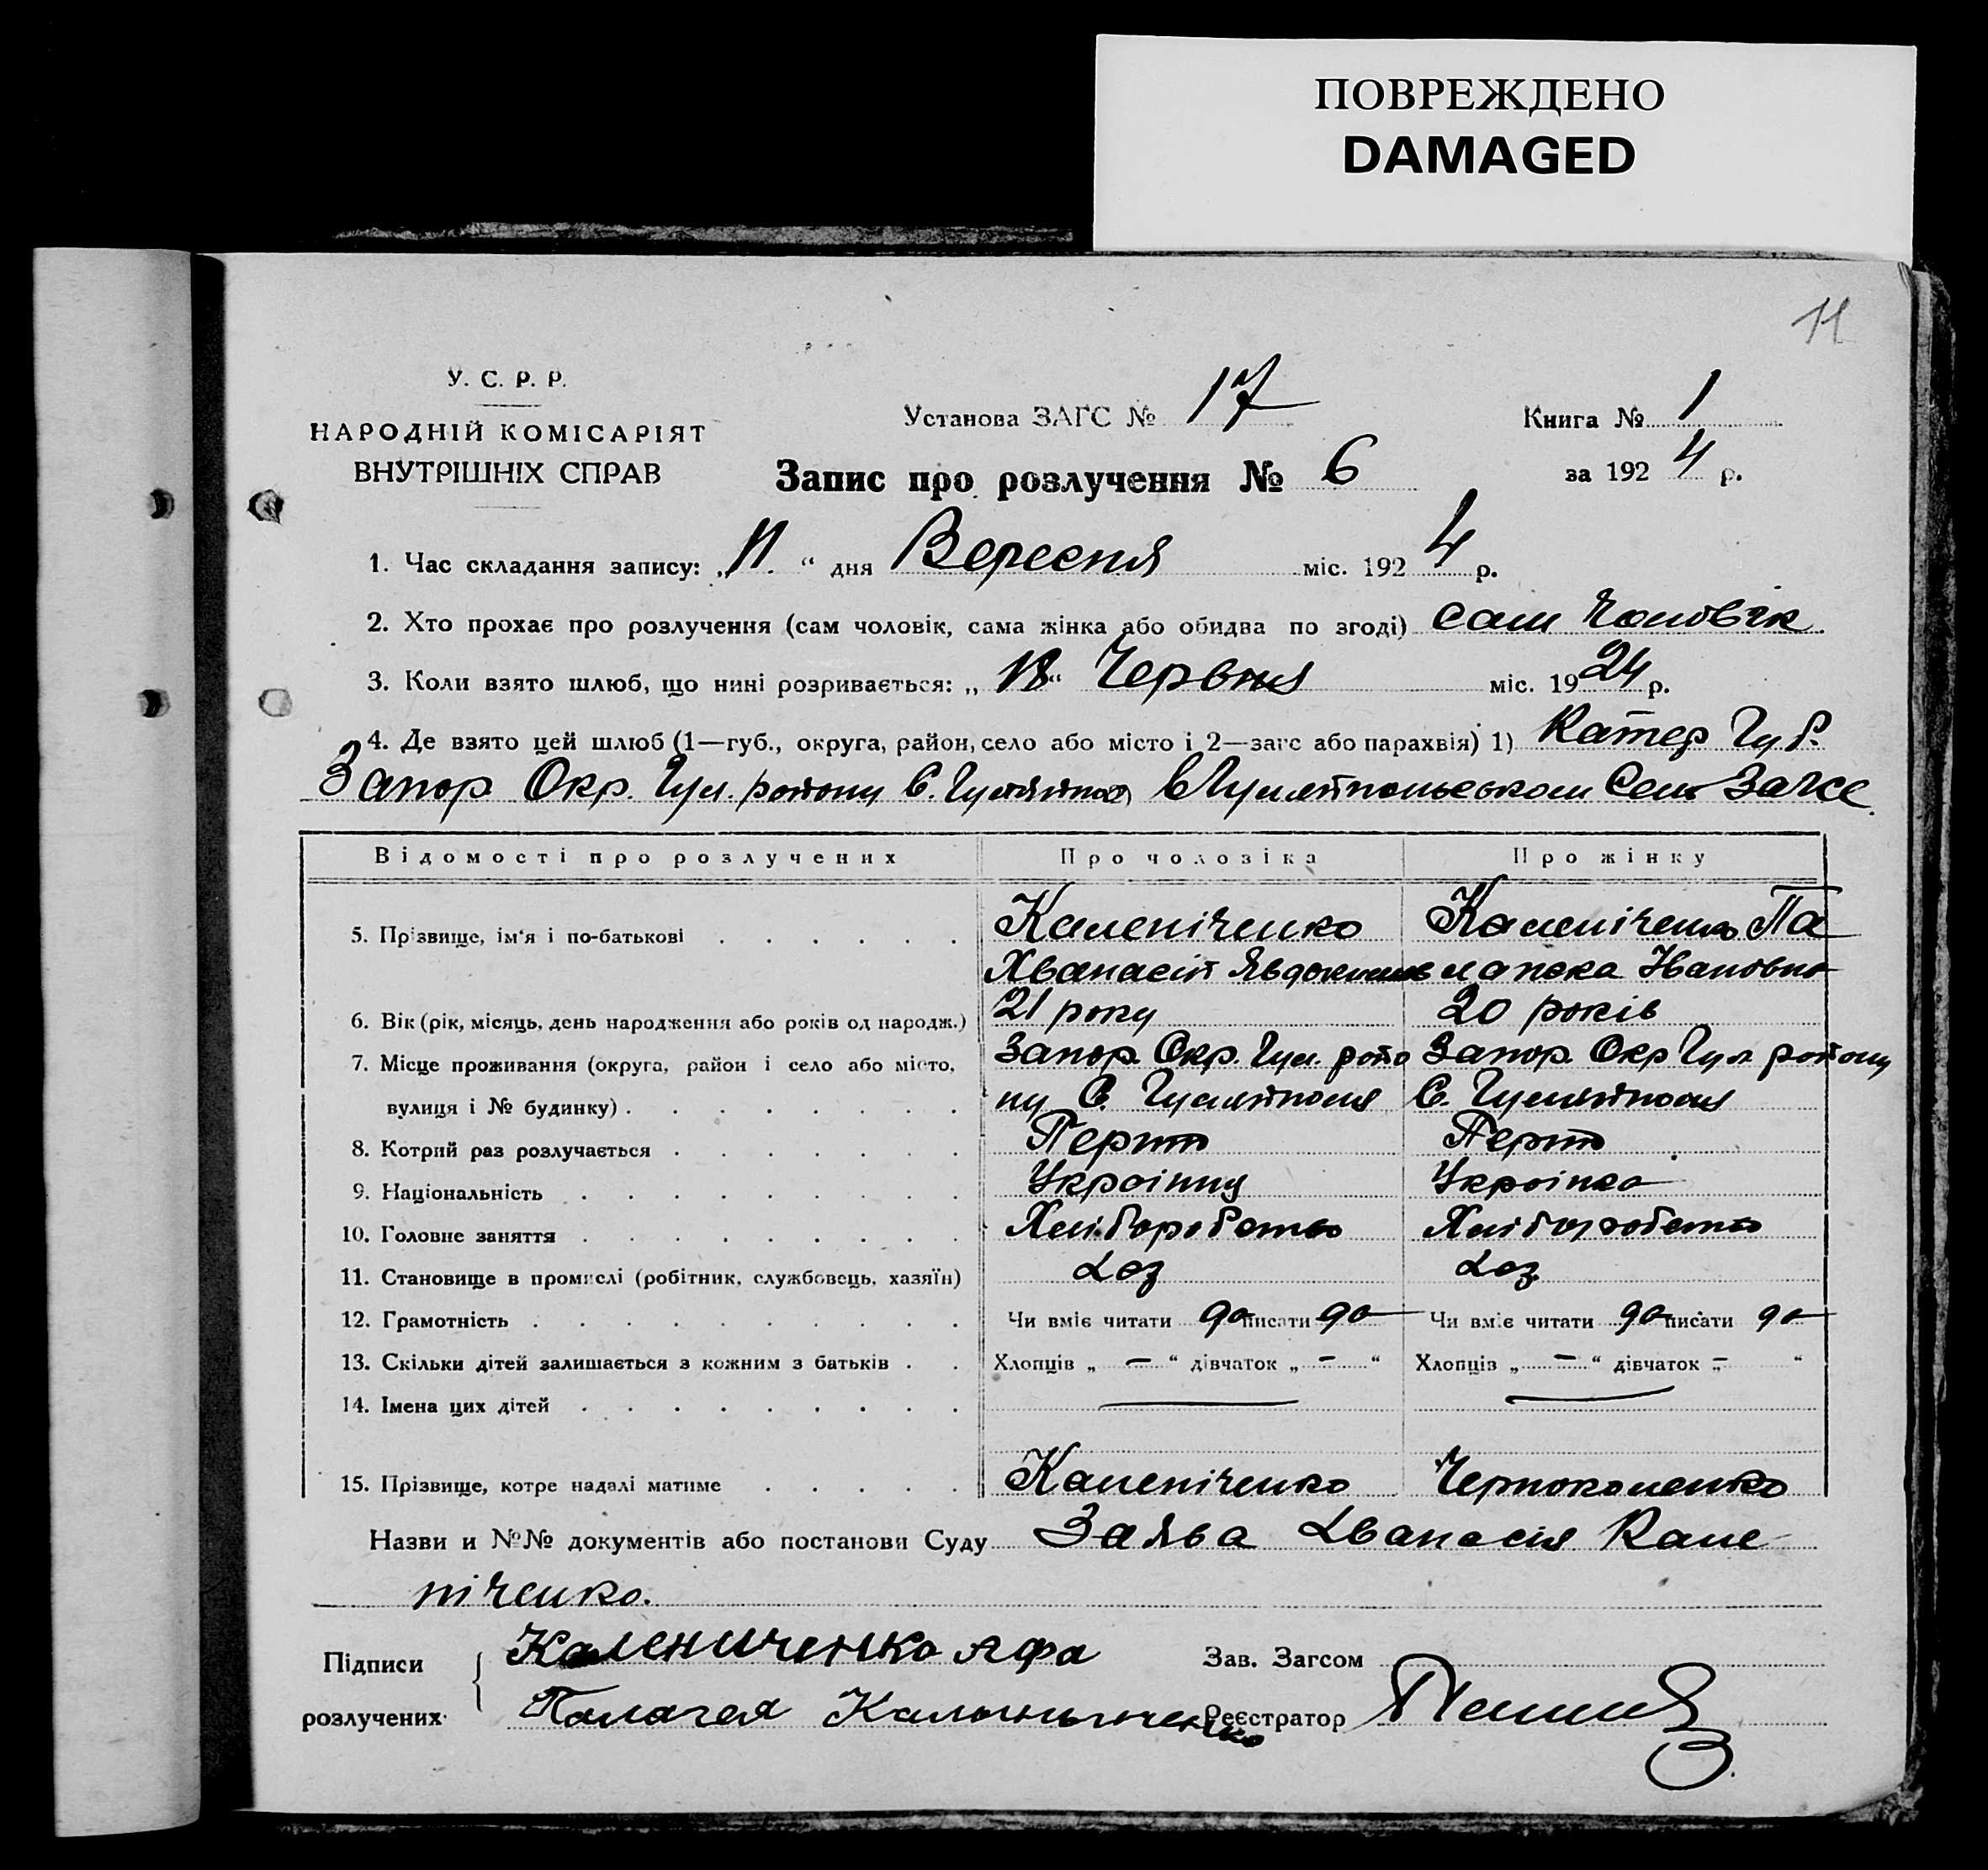 ПОВРЕЖДЕНО
DAMAGED
11
У. С. Р. Р.
НАРОДНІЙ КОМІСАРІЯТ
ВНУТРІШНІХ СПРАВ
Установа ЗАГС № 17
Книга № 1
за 1924 р.
Запис про розлучення № 6
1. Час складання запису: „11“ дня Вересня міс. 1924 р.
2. Хто прохає про розлучення (сам чоловік, сама жінка або обидва по згоді) сам Чоловік
3. Коли взято шлюб, що нині розривається: „18“ Червня міс. 1924 р.
4. Де взято цей шлюб (1—губ., округа, район, село або місто і 2—загс або парахвія) 1) Катер Губ.
Запор Окр. Гул. району С. Гуляйполе в Гуляйпольськом Сель Загсе
Відомості про розлучених Про чоловіка Про жінку
5. Прізвище, ім'я і по-батькові Каленіченко Каленіченко Па
Хванасій Явдокимов лажка Івановна
6. Вік (рік, місяць, день народження або років од народж.) 21 року 20 років
7. Місце проживання (округа, район і село або місто, Запор. Окр. Гул. райо Запор. Окр Гул району
вулиця і № будинку) ну С. Гуляйполя С. Гуляйполя
8. Котрий раз розлучається Перший Перший
9. Національність Українец Українка
10. Головне заняття Хліборобство Хліборобство
11. Становище в промислі (робітник, службовець, хазяїн) Хаз Хаз.
12. Грамотність Чи вміє читати да писати да Чи вміє читати да писати да
13. Скільки дітей залишається з кожним з батьків Хлопців „ — “ дівчаток „ — “ Хлопців „ — “ дівчаток „ — “
14. Імена цих дітей — —
15. Прізвище, котре надалі матиме Каленіченко Чернокаленко
Назви и №№ документів або постанови Суду Заява Хванасія Кале
ніченко.
Підписи Калениченко Афа Зав. Загсом
розлучених Палагея Калыныченко Реєстратор